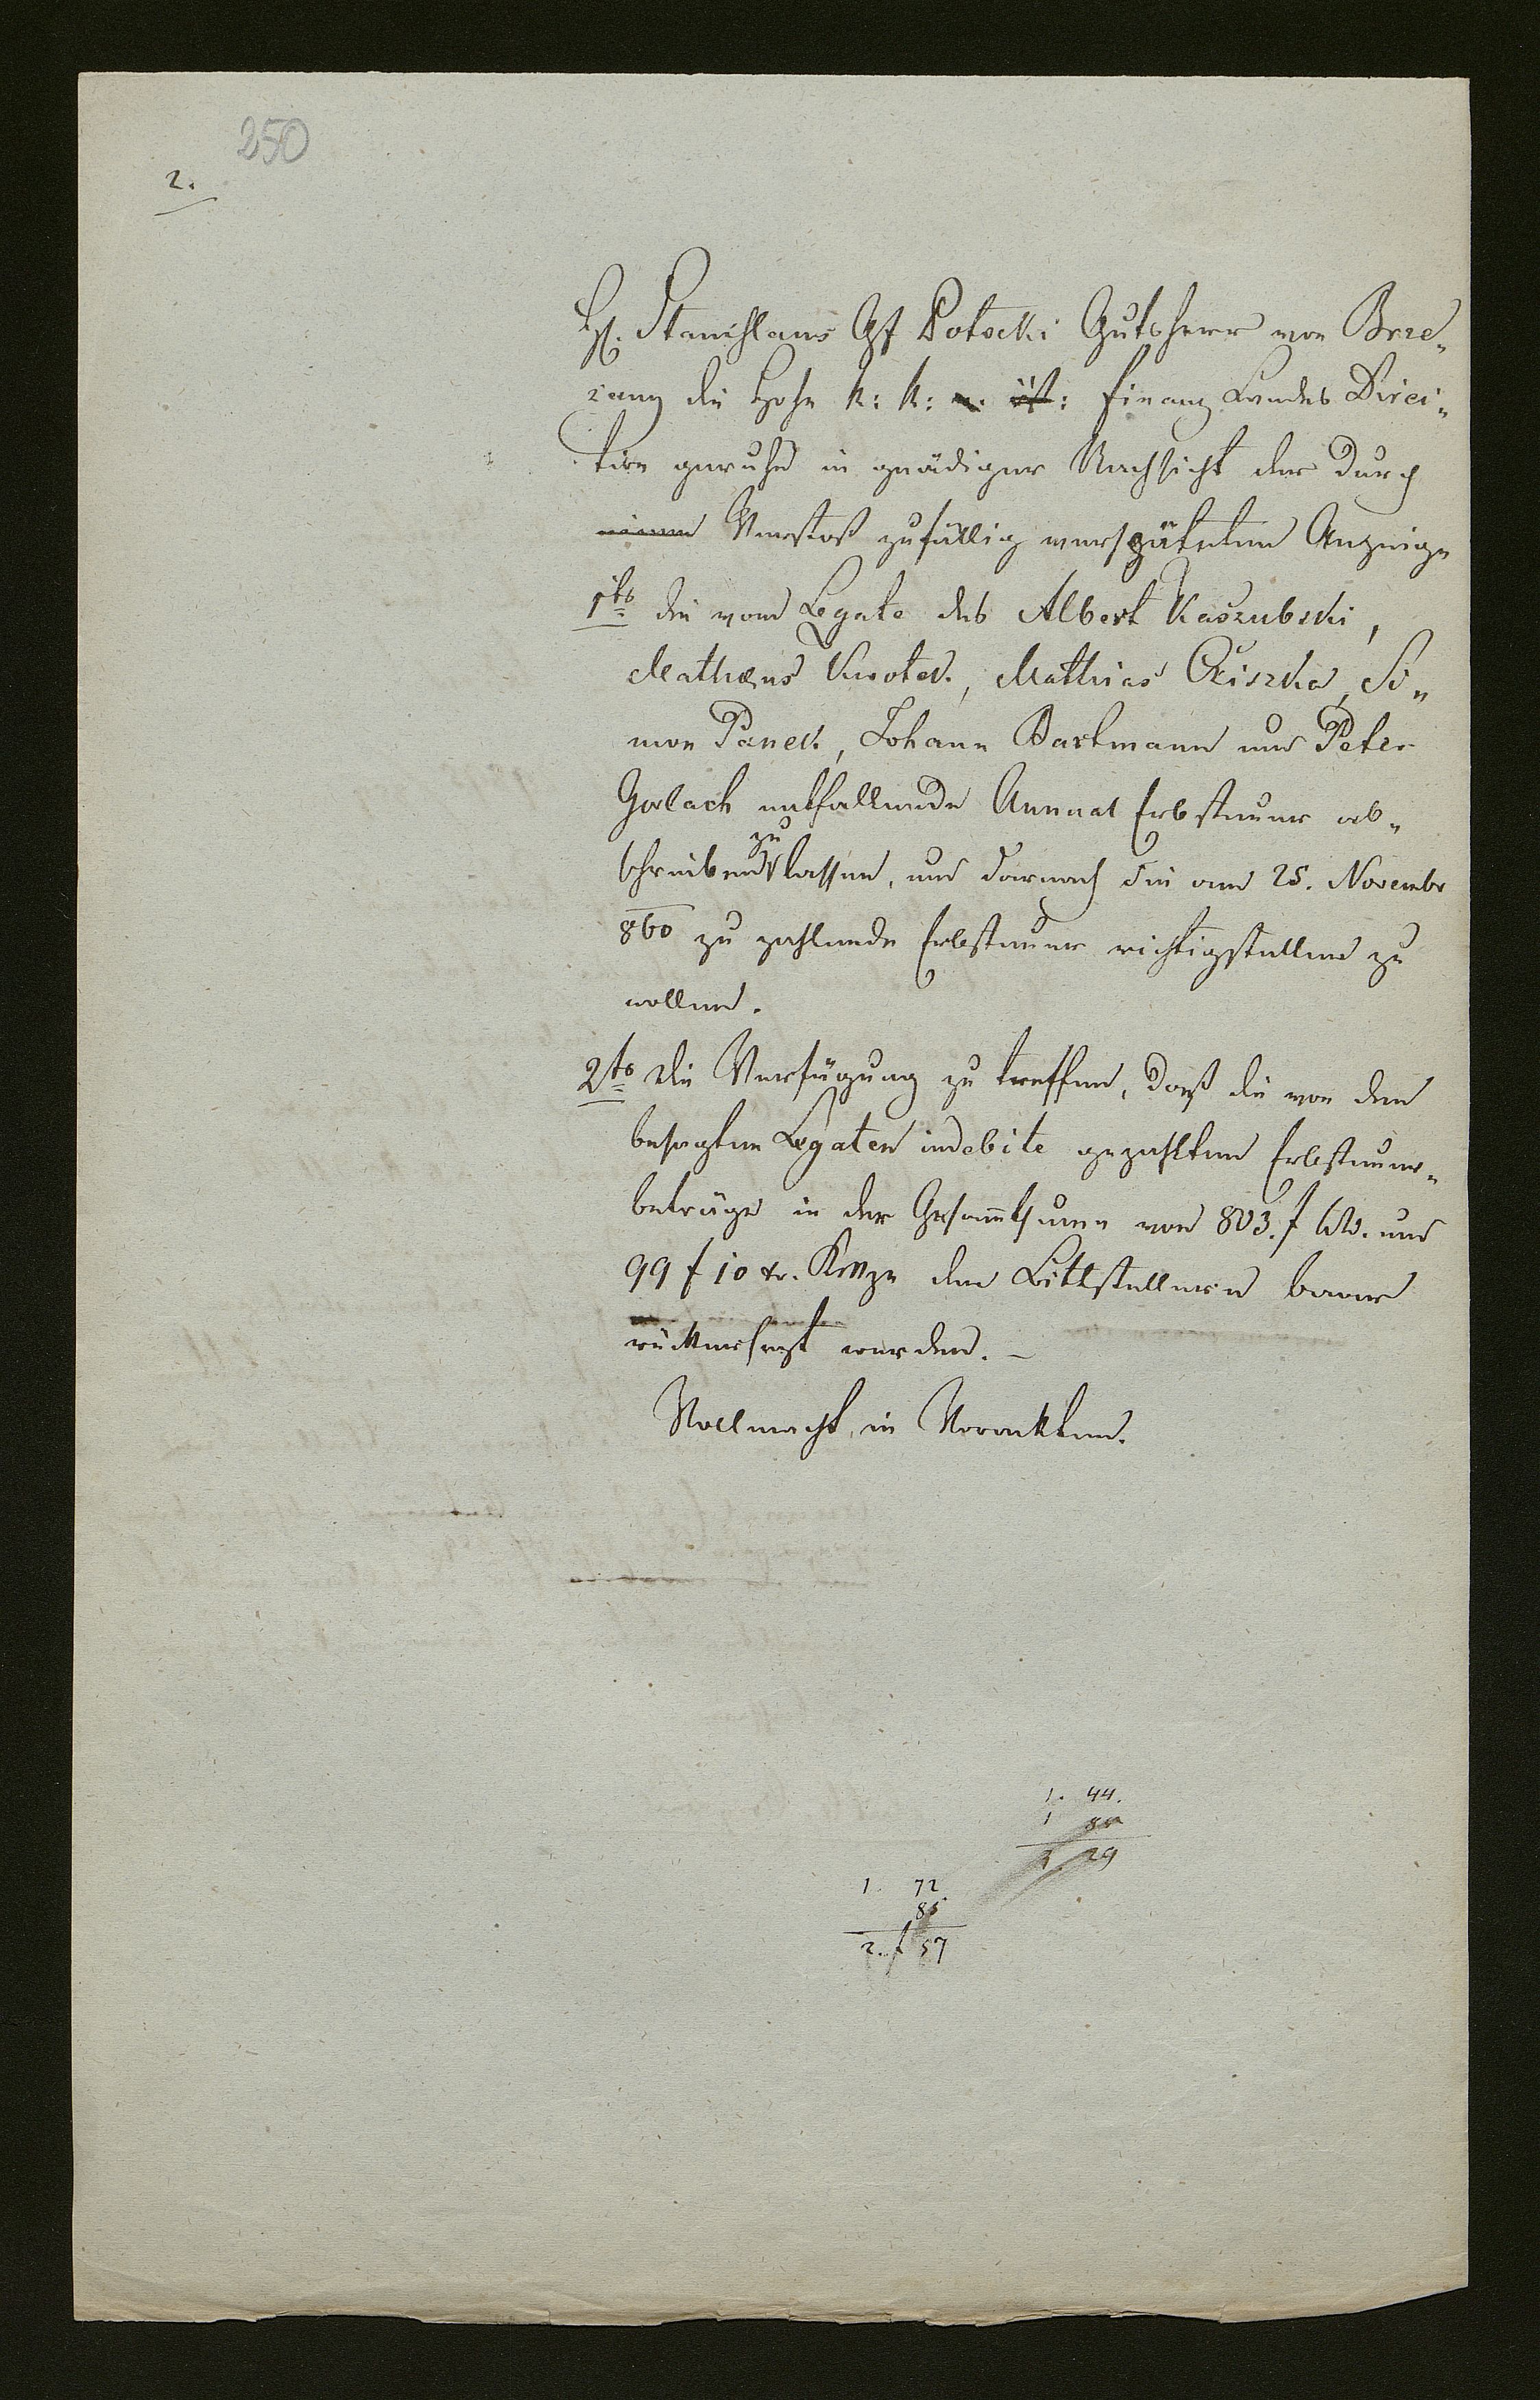 250
2.
H. Stanislaus Gf Potocki Gutsherr von Brze„
zany die Hohe k: k: n. öst: Finanz Landes Direc„
tion geruhe in gnädiger Nachsicht der durch
einen Verstoß zufällig verspäteten Anzeige
1tō die vom Legate des Albert Kaszubski,
Mathæus Knotek, Mathias Ożiszka, Si„
mon Panek, Johann Bartmann und Peter
Gorlach entfallende Annual Erbsteuer ab„
schreiben zu lassen, und darnach die am 25. November
860 zu zahlende Erbsteuer richtigstellen zu
wollen.
2to die Verfügung zu treffen, daß die von den
besagten Legaten indebite gezahlten Erbsteuer„
beträge in der Gesammtsumme von 803. f WW. und
99 f 10 xr. KMze den Bittstellern baar
rückersetzt werden. –
Vollmacht in Vorakten.
1. 44.
1 85
3. 29
1. 72
85
2. f 57